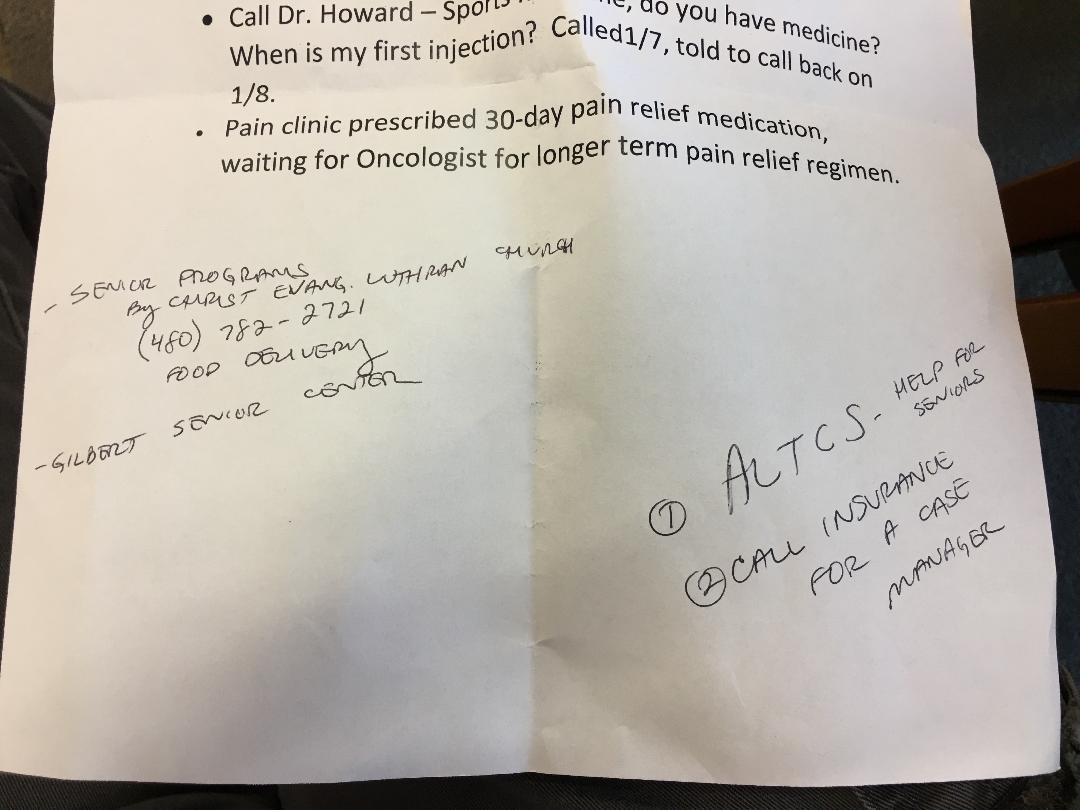 • Call Dr. Howard – Sports do you have medicine?
When is my first injection? Called1/7, told to call back on
1/8.
• Pain clinic prescribed 30-day pain relief medication,
waiting for Oncologist for longer term pain relief regimen.
- SENIOR PROGRAMS
By CHRIST EVANG. LUTHRAN CHURCH
(480) 782-2721
FOOD DELIVERY
- GILBERT SENIOR CENTER
① ALTCS - HELP FOR
SENIORS
② CALL INSURANCE
FOR A CASE
MANAGER